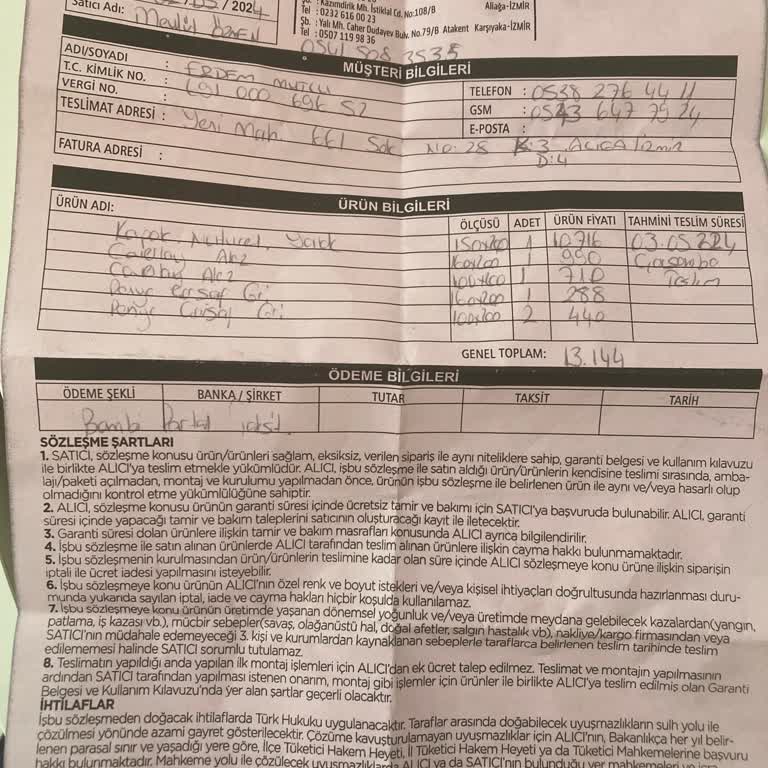 / 2024
Satıcı Adı: Mevlüt Özen
Şb. : Kazımdirik Mh. İstiklal Cd. No:108/B Aliağa-İZMİR
Tel : 0232 616 00 23
Şb. : Yalı Mh. Caher Dudayev Bulv. No.79/B Atakent Karşıyaka-İZMİR
Tel : 0507 119 98 36
MÜŞTERİ BİLGİLERİ
ADI/SOYADI : ERDEM MUTCU
T.C. KİMLİK NO. : 691 000 696 52
VERGİ NO.
TESLİMAT ADRESİ : Yeni Mah Sok NO: 28 K:3 D:4
FATURA ADRESİ :
TELEFON : 0538 276 44 11
GSM : 0543 647 75 24
E-POSTA :
ÜRÜN BİLGİLERİ
ÜRÜN ADI: ÖLÇÜSÜ ADET ÜRÜN FİYATI TAHMİNİ TESLİM SÜRESİ
150x200 1 10.716
160x200 1 990 Çarşamba
100x200 1 710 Teslim
160x200 1 288
100x200 2 440
GENEL TOPLAM: 13.144
ÖDEME BİLGİLERİ
ÖDEME ŞEKLİ BANKA / ŞİRKET TUTAR TAKSİT TARİH
Bambi
SÖZLEŞME ŞARTLARI
1. SATICI, sözleşme konusu ürün/ürünleri sağlam, eksiksiz, verilen sipariş ile aynı niteliklere sahip, garanti belgesi ve kullanım kılavuzu
ile birlikte ALICI'ya teslim etmekle yükümlüdür. ALICI, işbu sözleşme ile satın aldığı ürün/ürünlerin kendisine teslimi sırasında, amba-
lajı/paketi açılmadan, montaj ve kurulumu yapılmadan önce, ürünün işbu sözleşme ile belirlenen ürün ile aynı ve/veya hasarlı olup
olmadığını kontrol etme yükümlülüğüne sahiptir.
2. ALICI, sözleşme konusu ürünün garanti süresi içinde ücretsiz tamir ve bakımı için SATICI'ya başvuruda bulunabilir. ALICI, garanti
süresi içinde yapacağı tamir ve bakım taleplerini satıcının oluşturacağı kayıt ile iletecektir.
3. Garanti süresi dolan ürünlere ilişkin tamir ve bakım masrafları konusunda ALICI ayrıca bilgilendirilir.
4. İşbu sözleşme ile satın alınan ürünlerde ALICI tarafından teslim alınan ürünlere ilişkin cayma hakkı bulunmamaktadır.
5. İşbu sözleşmenin kurulmasından ürün/ürünlerin teslimine kadar olan süre içinde ALICI sözleşmeye konu ürüne ilişkin siparişin
iptali ile ücret iadesi yapılmasını isteyebilir.
6. İşbu sözleşmeye konu ürünün ALICI'nın özel renk ve boyut istekleri ve/veya kişisel ihtiyaçları doğrultusunda hazırlanması duru-
munda yukarıda sayılan iptal, iade ve cayma hakları hiçbir koşulda kullanılamaz.
7. İşbu sözleşmeye konu ürünün üretimde yaşanan dönemsel yoğunluk ve/veya üretimde meydana gelebilecek kazalardan(yangın,
patlama, iş kazası vb.), mücbir sebepler(savaş, olağanüstü hal, doğal afetler, salgın hastalık vb), nakliye/kargo firmasından veya
SATICI'nın müdahale edemeyeceği 3. kişi ve kurumlardan kaynaklanan sebeplerle taraflarca belirlenen teslim tarihinde teslim
edilememesi halinde SATICI sorumlu tutulamaz.
8. Teslimatın yapıldığı anda yapılan ilk montaj işlemleri için ALICI'dan ek ücret talep edilmez. Teslimat ve montajın yapılmasının
ardından SATICI tarafından yapılması istenen onarım, montaj gibi işlemler için ürünler ile birlikte ALICI'ya teslim edilmiş olan Garanti
Belgesi ve Kullanım Kılavuzu'nda yer alan şartlar geçerli olacaktır.
İHTİLAFLAR
İşbu sözleşmeden doğacak ihtilaflarda Türk Hukuku uygulanacaktır. Taraflar arasında doğabilecek uyuşmazlıkların sulh yolu ile
çözülmesi yönünde azami gayret gösterilecektir. Çözüme kavuşturulamayan uyuşmazlıklar için ALICI'nın, Bakanlıkça her yıl belir-
lenen parasal sınır ve yaşadığı yere göre, İlçe Tüketici Hakem Heyeti, İl Tüketici Hakem Heyeti ya da Tüketici Mahkemelerine başvuru
hakkı bulunmaktadır. Mahkeme yolu ile çözülecek uyuşmazlıklarda ALICI ya da SATICI'nın bulunduğu yer mahkemeleri